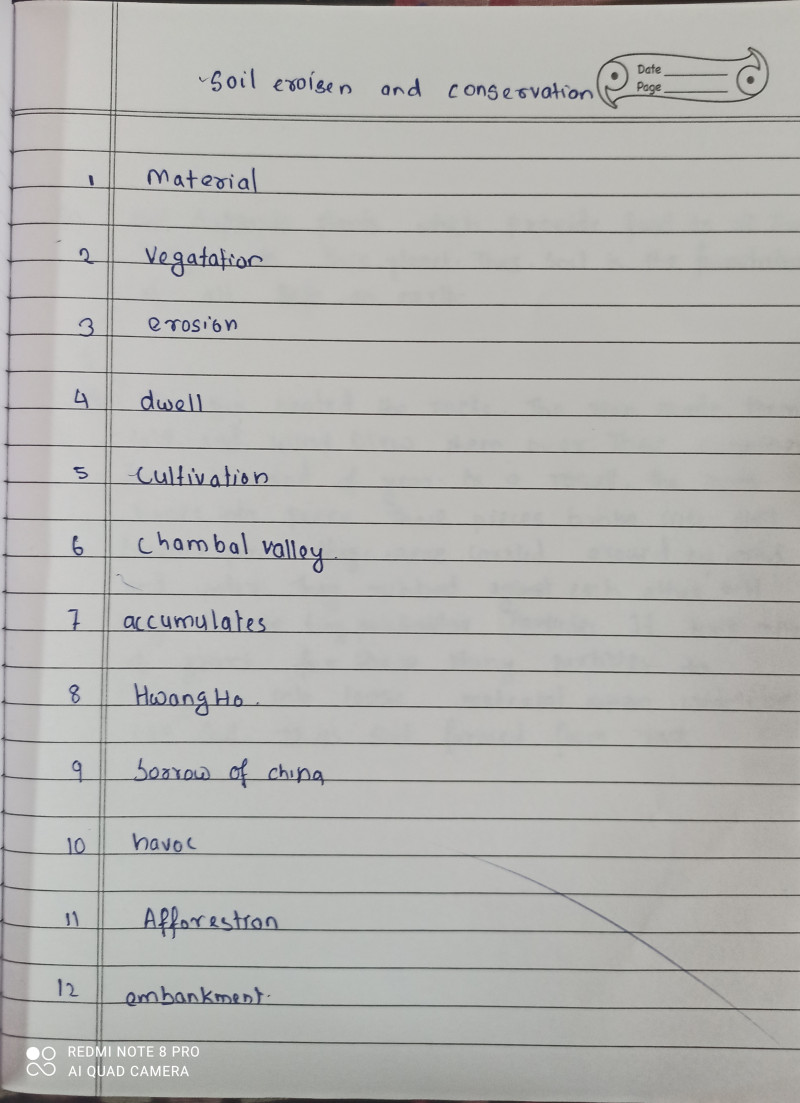 Soil eroisen and conservation
Date
Page
1 Material
2 Vegatation
3 erosion
4 dwell
5 Cultivation
6 Chambal valley.
7 accumulates
8 HwangHo.
9 Sorrow of china
10 havoc
11 Afforestion
12 embankment.
REDMI NOTE 8 PRO
AI QUAD CAMERA